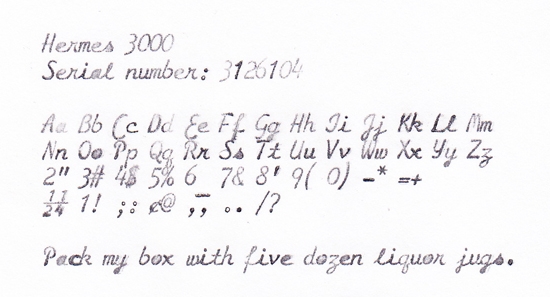 Hermes 3000
Serial number: 3126104
Aa Bb Cc Dd Ee Ff Gg Hh Ii Jj Kk Ll Mm
Nn Oo Pp Qq Rr Ss Tt Uu Vv Ww Xx Yy Zz
2" 3# 4$ 5% 6 7& 8' 9( 0) -* =+
½ ¼ 1! ;: ¢@ ,, .. /?
Pack my box with five dozen liquor jugs.